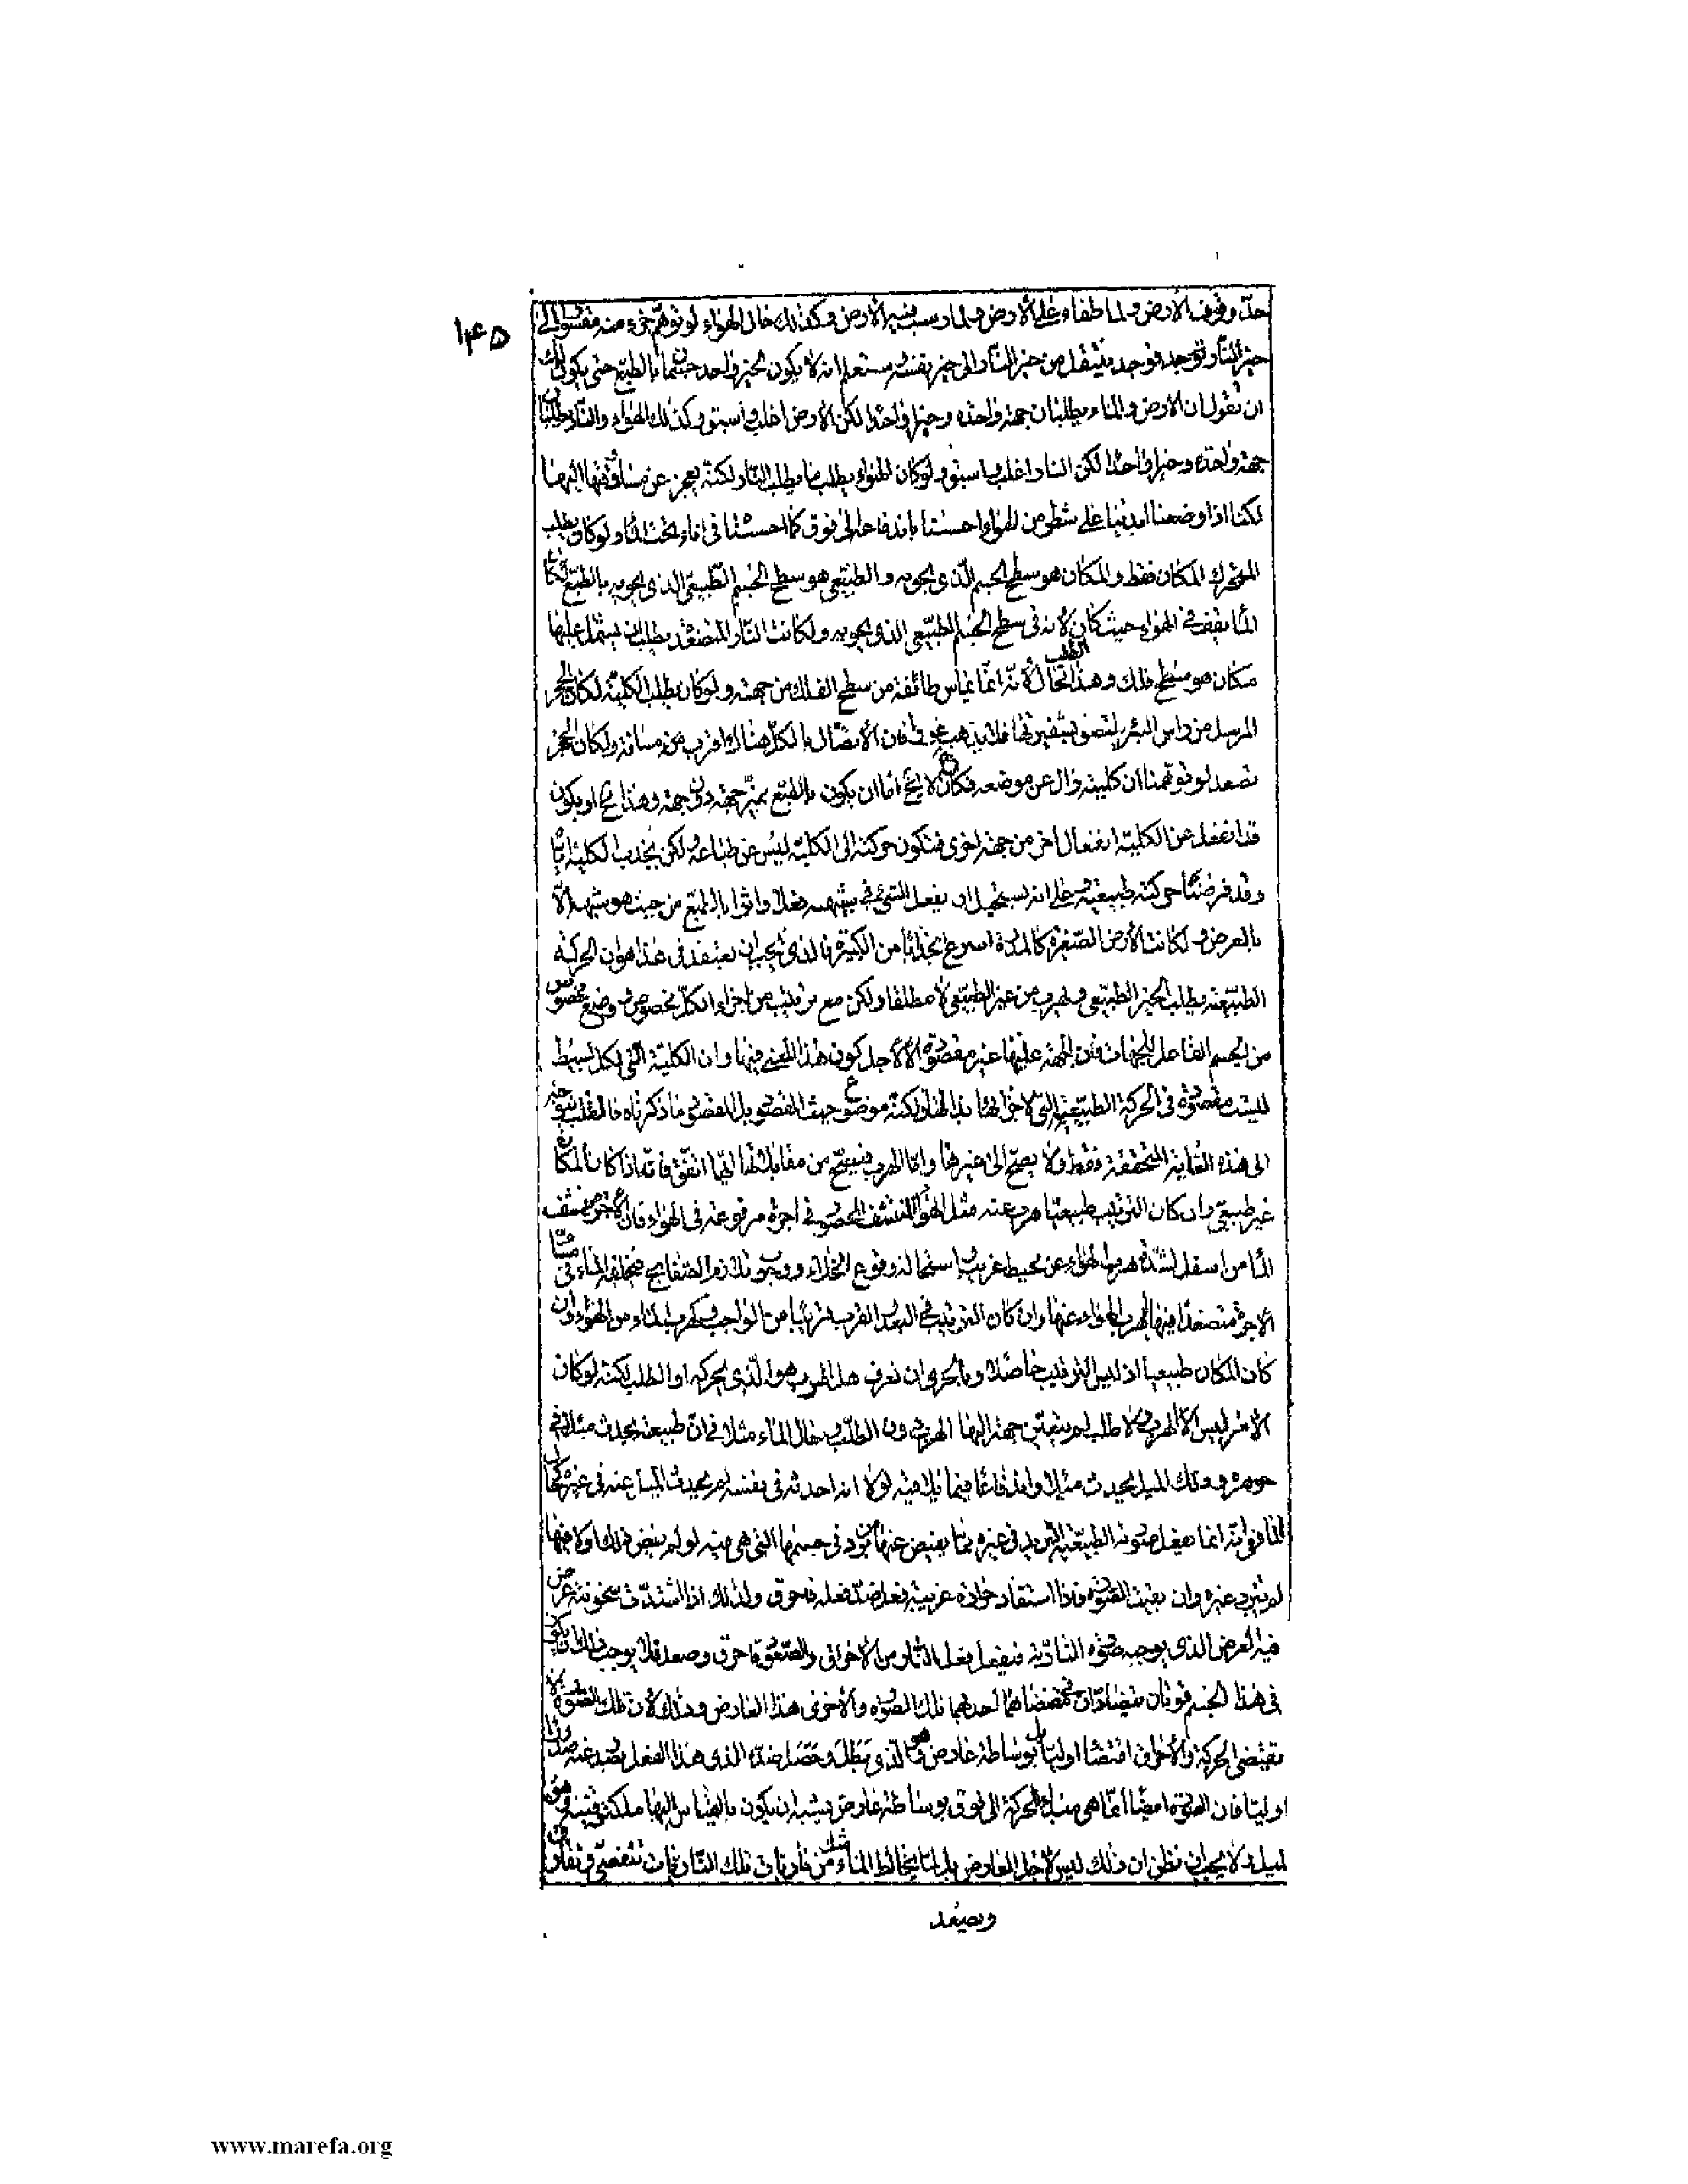 ١٤٥
حدّ وقوف الأرض ولما طفا على الأرض ولما رسب فيه الأرض وكذلك حال الهواء لو توهّم جزء منه مقسورا الى
حيّز النار فوجد ينتقل من حيّز النار الى حيّز نفسه ستعلم انه لا يكون لحيّز واحد جسمان بالطبع حتى يكون لك
ان تقول ان الارض والماء يطلبان جهة واحدة وحيزا واحدا لكن الأرض اغلب واسبق وكذلك الهواء والنار يطلبان
جهة واحدة وحيزا واحدا لكن النار اغلب واسبق ولو كان الهواء يطلب ما يطلب النار لكنه يعجز عن مساوقتها اليها
لكنا اذا وضعنا ايدينا على شطر من الهواء احسسنا باندفاعه الى فوق كما احسسنا في اناء تحت الماء ولو كان يطلب
المتحرك المكان فقط والمكان هو سطح الجسم الذي يحويه والطبيعي هو سطح الجسم الطبيعي الذي يحويه بالطبع لكان
الماء يقف في الهواء حيث كان لأنه في سطح الجسم الطبيعي الذي يحويه ولكانت النار المتصعدة يطلب ان يشتمل عليها
مكان هو سطح فلك وهذا الطلب محال لأنه انما يماس طائفة من سطح الفلك من جهة ولو كان يطلب الكلية لكان الحجر
المرسل من راس البئر يلتصق بشفيرها فلا يذهب غورا فان الأتصال بالكل هناك اقرب من مسافة ولكان الحجر
تصعد لو توهمنا ان كلية زال عن موضعه فكان لا يخ اما ان يكون بالطبع يميز جهة دون جهة وهذا مح او يكون
قد انفعل عن الكلية انفعال اخر من جهة اخرى فتكون حركته الى الكلية ليس عن طباعه ولكن بجذب الكلية اياها
وقد فرضنا حركته طبيعية على انه يستحيل ان يفعل الشيء في شبيهه فعلا واثرا بالطبع من حيث هو شبيهه الّا
بالعرض ولكانت الأرض الصغيرة كالمدرة اسرع انجذابا من الكبيرة فالذي يجب ان يعتقد في هذا هو ان الحركة
الطبيعية يطلب الحيز الطبيعي ويهرب من غير الطبيعي لا مطلقا ولكن مع ترتيب من اجزاء الكل مخصوص ووضع مخصوص
من الجسم الفاعل للجهات فان الجهة عليها غير مقصودة الا لأجل كون هذا المعنى فيها وان الكلية التي لكل بسيط
ليست مقصودة في الحركة الطبيعية التي لاجزائها لكنه موضوع حيث المقصود بل المقصود ما ذكرناه فالطلب يتوجه
الى هذه الغاية المتحققة فقط ولا يصح الى غيرها واما الهرب فيصح من مقابلاتها ايها اتفق فانه اذا كان المكان
غير طبيعي وان كان الترتيب طبيعيا هرب عنه مثل الهواء المنتشف المحصور في اجرة مرفوعة في الهواء فان الاجرة ينشف
الماء من اسفل لشدة هرب الهواء عن محيط غريب واستحالة وقوع الخلاء ووجوب تلازم الصفايح فيخلفه الماء في مسام
الاجرة متصعدا فيها لهرب الهواء عنها وان كان الترتيب في البعد والقرب قريبا من الواجب فكهرب الماء من الهواء وان
كان المكان طبيعيا اذ ليس الترتيب حاصلا وبالحرى ان نعرف هل الهرب هو الذي يحركه او الطلب لكنه لو كان
الأمر ليس الا الهرب لا طلب لم يتعين جهة اليها الهرب دون الطلب وحال الماء مثلا في ان طبيعته يحدث ميلا في
جوهره وذلك الميل يحدث ميلا واندفاعا فيما يلاقيه لولا انه احدثه في نفسه لم يحدث اتباع عنه في غيره كحال
الماء في انه انما يفعل صورته الطبيعية التبريد في غيره بما يفيض عنها من برد في جسمها التي هي فيه لو لم يفض ذلك اولا فيها
لم تبرد غيره وان بقيت الصورة فاذا استفاد حرارة غريبة فعل ضد فعله فاحرق ولذلك اذا اشتدت سخونته عرض
فيه العرض الذي يوجبه صورة النارية فيفعل بفعل النار من الأحراق والصعود فاحرق وصعد فلا يوجب ذلك ان يكون
في هذا الجسم قوتان متضادتان مقتضاهما احدهما تلك الصورة والأخرى هذا العارض وذلك لأن تلك الصورة لا
تقتضي الحركة والأحراق اقتضاء اوليا بل بوساطة عارض هو الذي بطل وحصل ضده الذي هذا الفعل يصدر عنه صدورا
اوليا فان الصورة ايضا انما هي مبدأ للحركة الى فوق بوساطة عارض يشبه ان يكون بالقياس اليها ملكة وقنية فهو
الميل ولا يجب ان نظن ان ذلك ليس لأجل العارض بل لما يخالط الماء مثلا من ناريات تلك الناريات تتقصى وتفارق
وتصعد
www.marefa.org